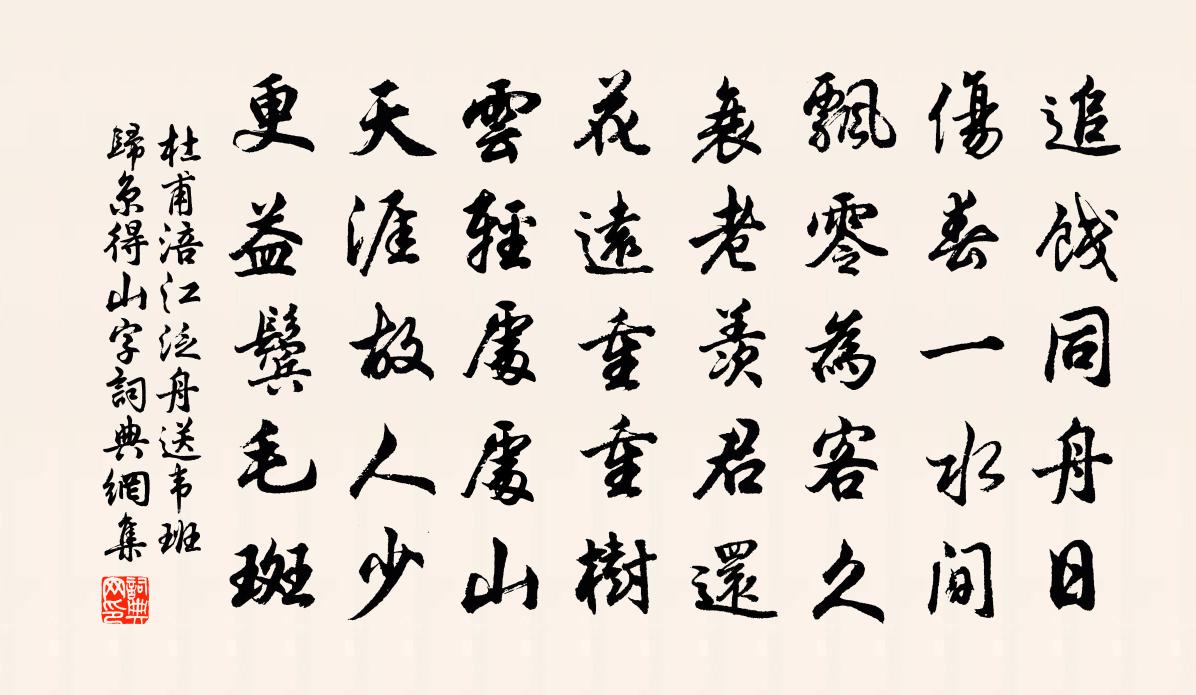 追餞同舟日
傷春一水間
飄零為客久
衰老羨君還
花遠重重樹
雲輕處處山
天涯故人少
更益鬢毛斑
杜甫涪江泛舟送韦班
歸京得山字詞典網集
詞典
网印